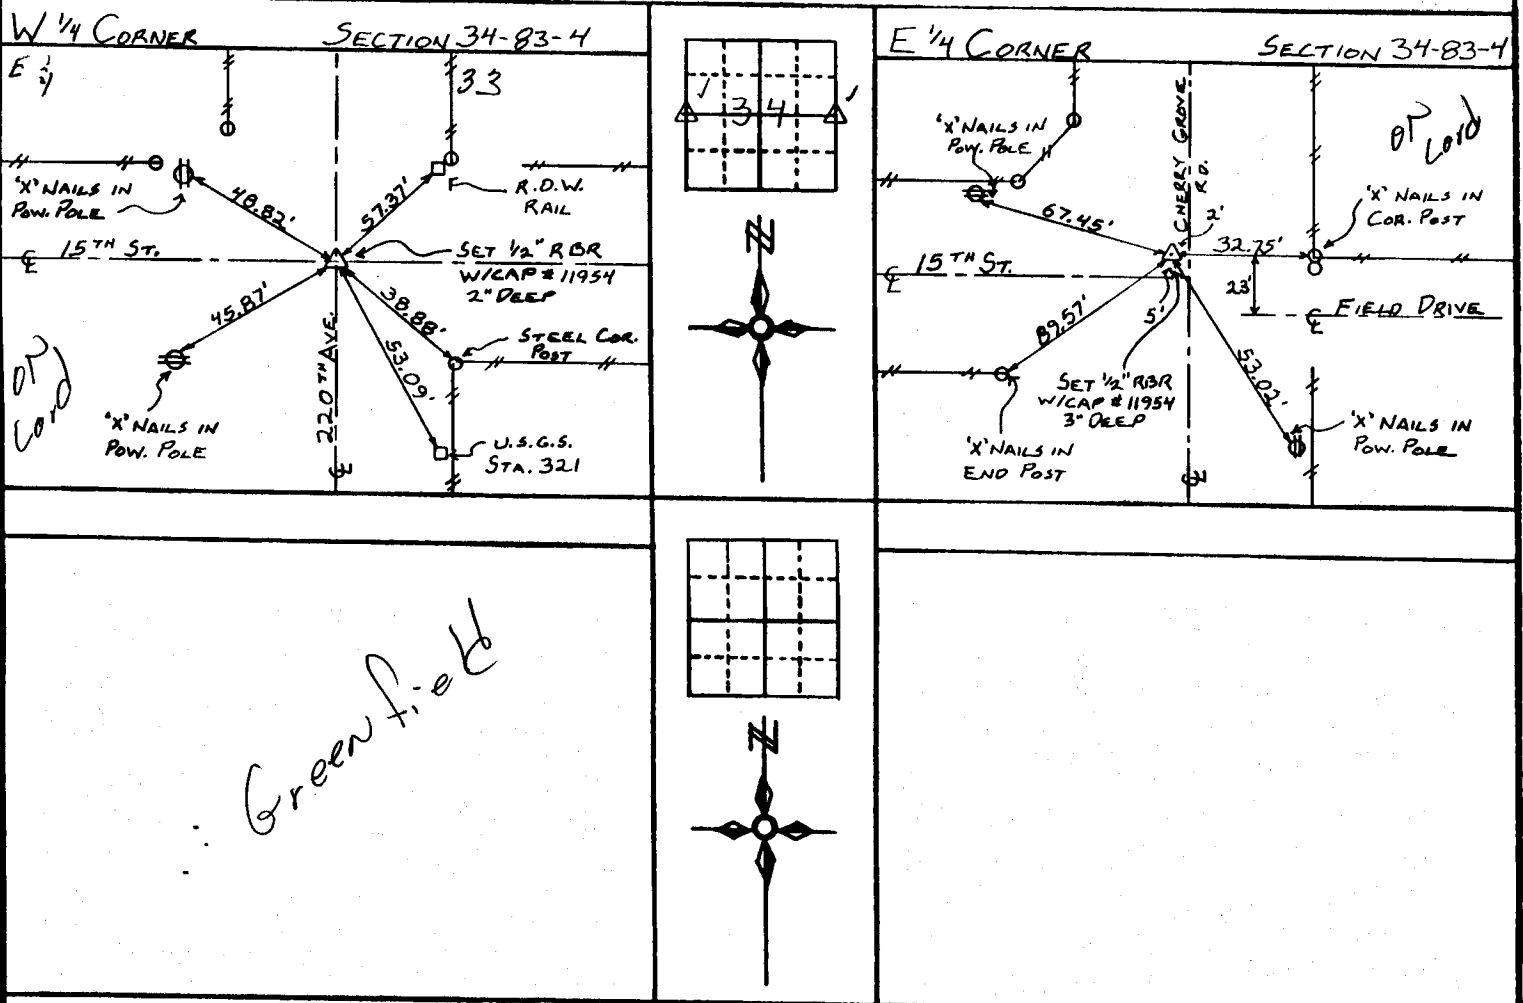 W 1/4 CORNER SECTION 34-83-4
E 1/4
33
'X' NAILS IN
POW. POLE
48.82'
57.37'
R.O.W.
RAIL
15TH ST.
SET 1/2" RBR
W/CAP # 11954
2" DEEP
45.87'
38.88'
53.09'
STEEL COR.
POST
220TH AVE.
'X' NAILS IN
POW. POLE
U.S.G.S.
STA. 321
34
N
E 1/4 CORNER SECTION 34-83-4
'X' NAILS IN
POW. POLE
CHERRY GROVE
RD.
'X' NAILS IN
COR. POST
67.45'
2'
32.75'
15TH ST.
23'
FIELD DRIVE
5'
89.57'
53.02'
SET 1/2" RBR
W/CAP # 11954
3" DEEP
'X' NAILS IN
END POST
'X' NAILS IN
POW. POLE
Greenfield
N